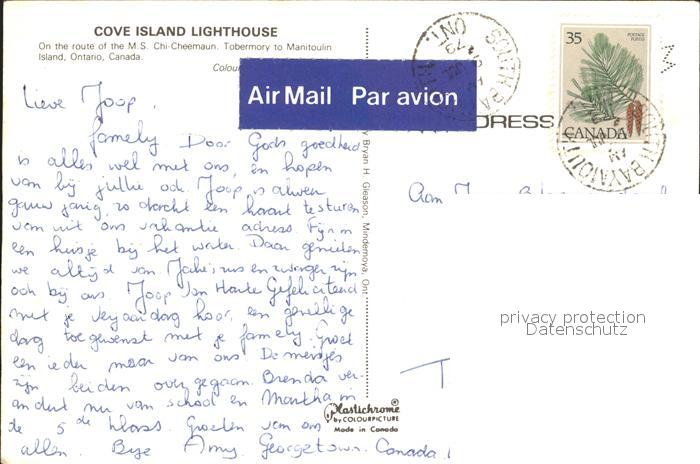 COVE ISLAND LIGHTHOUSE
On the route of the M.S. Chi-Cheemaun. Tobermory to Manitoulin
Island, Ontario, Canada.
Colour
Air Mail Par avion
DRESS
35
POSTAGE
POSTES
CANADA
SOUTH BAY
ONT
by Bryan H. Gleason, Mindemoya, Ont.
Lieve Joop,
famely Door Gods goedheid
is alles wel met ons, en hopen
van bij jullie ook. Joop is alweer
gauw jarig, zo dacht een kaart te sturen
van uit ons vakantie adres. Fijn in
een huisje bij het water. Daar genieten
we altijd van
ook bij ons. Joop Van Harte Gefeliciteerd
met je verjaardag hoor, een gezellige
dag toegewenst met je famely. Groet
een ieder maar van ons. De meisjes
zijn beiden overgegaan. Brenda ver-
andert nu van school en Martha in
de 5de klass. Groeten van ons
allen. Bye Amy. Georgetown. Canada.
Aan J
T
privacy protection
Datenschutz
Plastichrome®
by COLOURPICTURE
Made in Canada